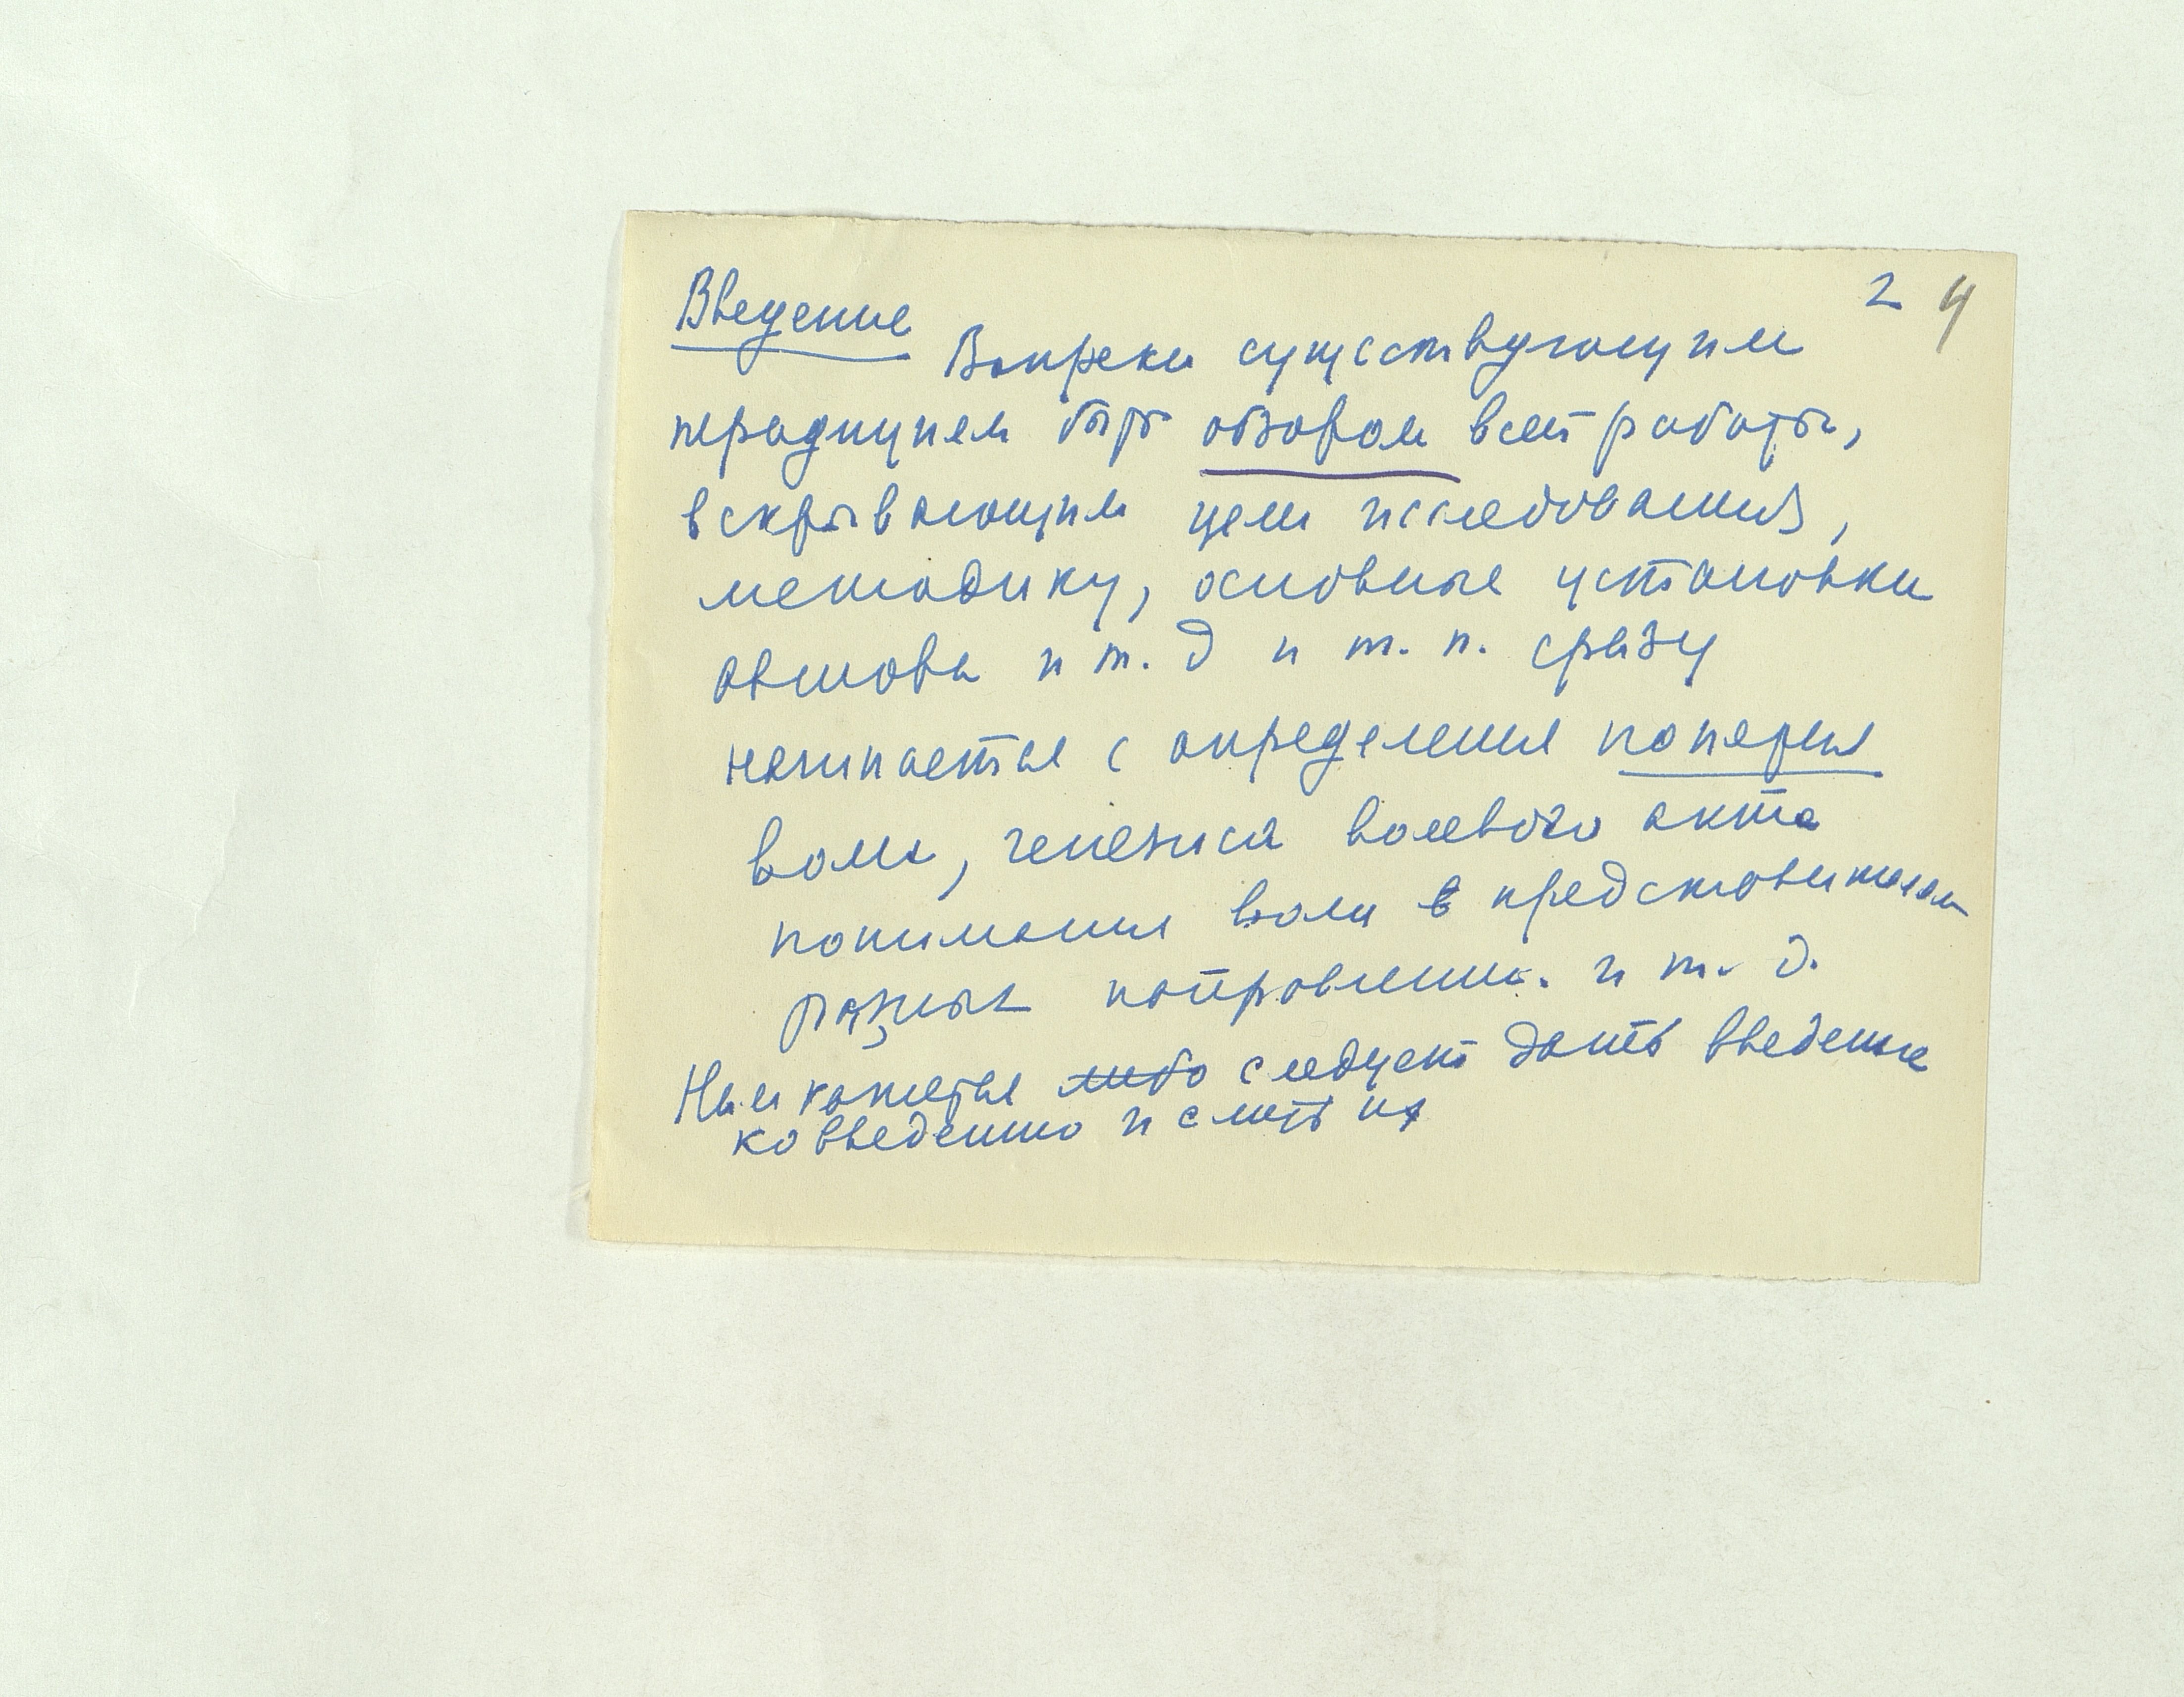 2 4
Введение
Вопреки существующим
традициям быть обзором всей работы,
вскрывающим цели исследования,
методику, основные установки
автова и т. д и т. п. сразу
начинается с определения понятия
воли, генезиса волевого акта
понимания воли в
разных направлени. и т. д.
Нам кажется либо следует дать введение
ко введению и